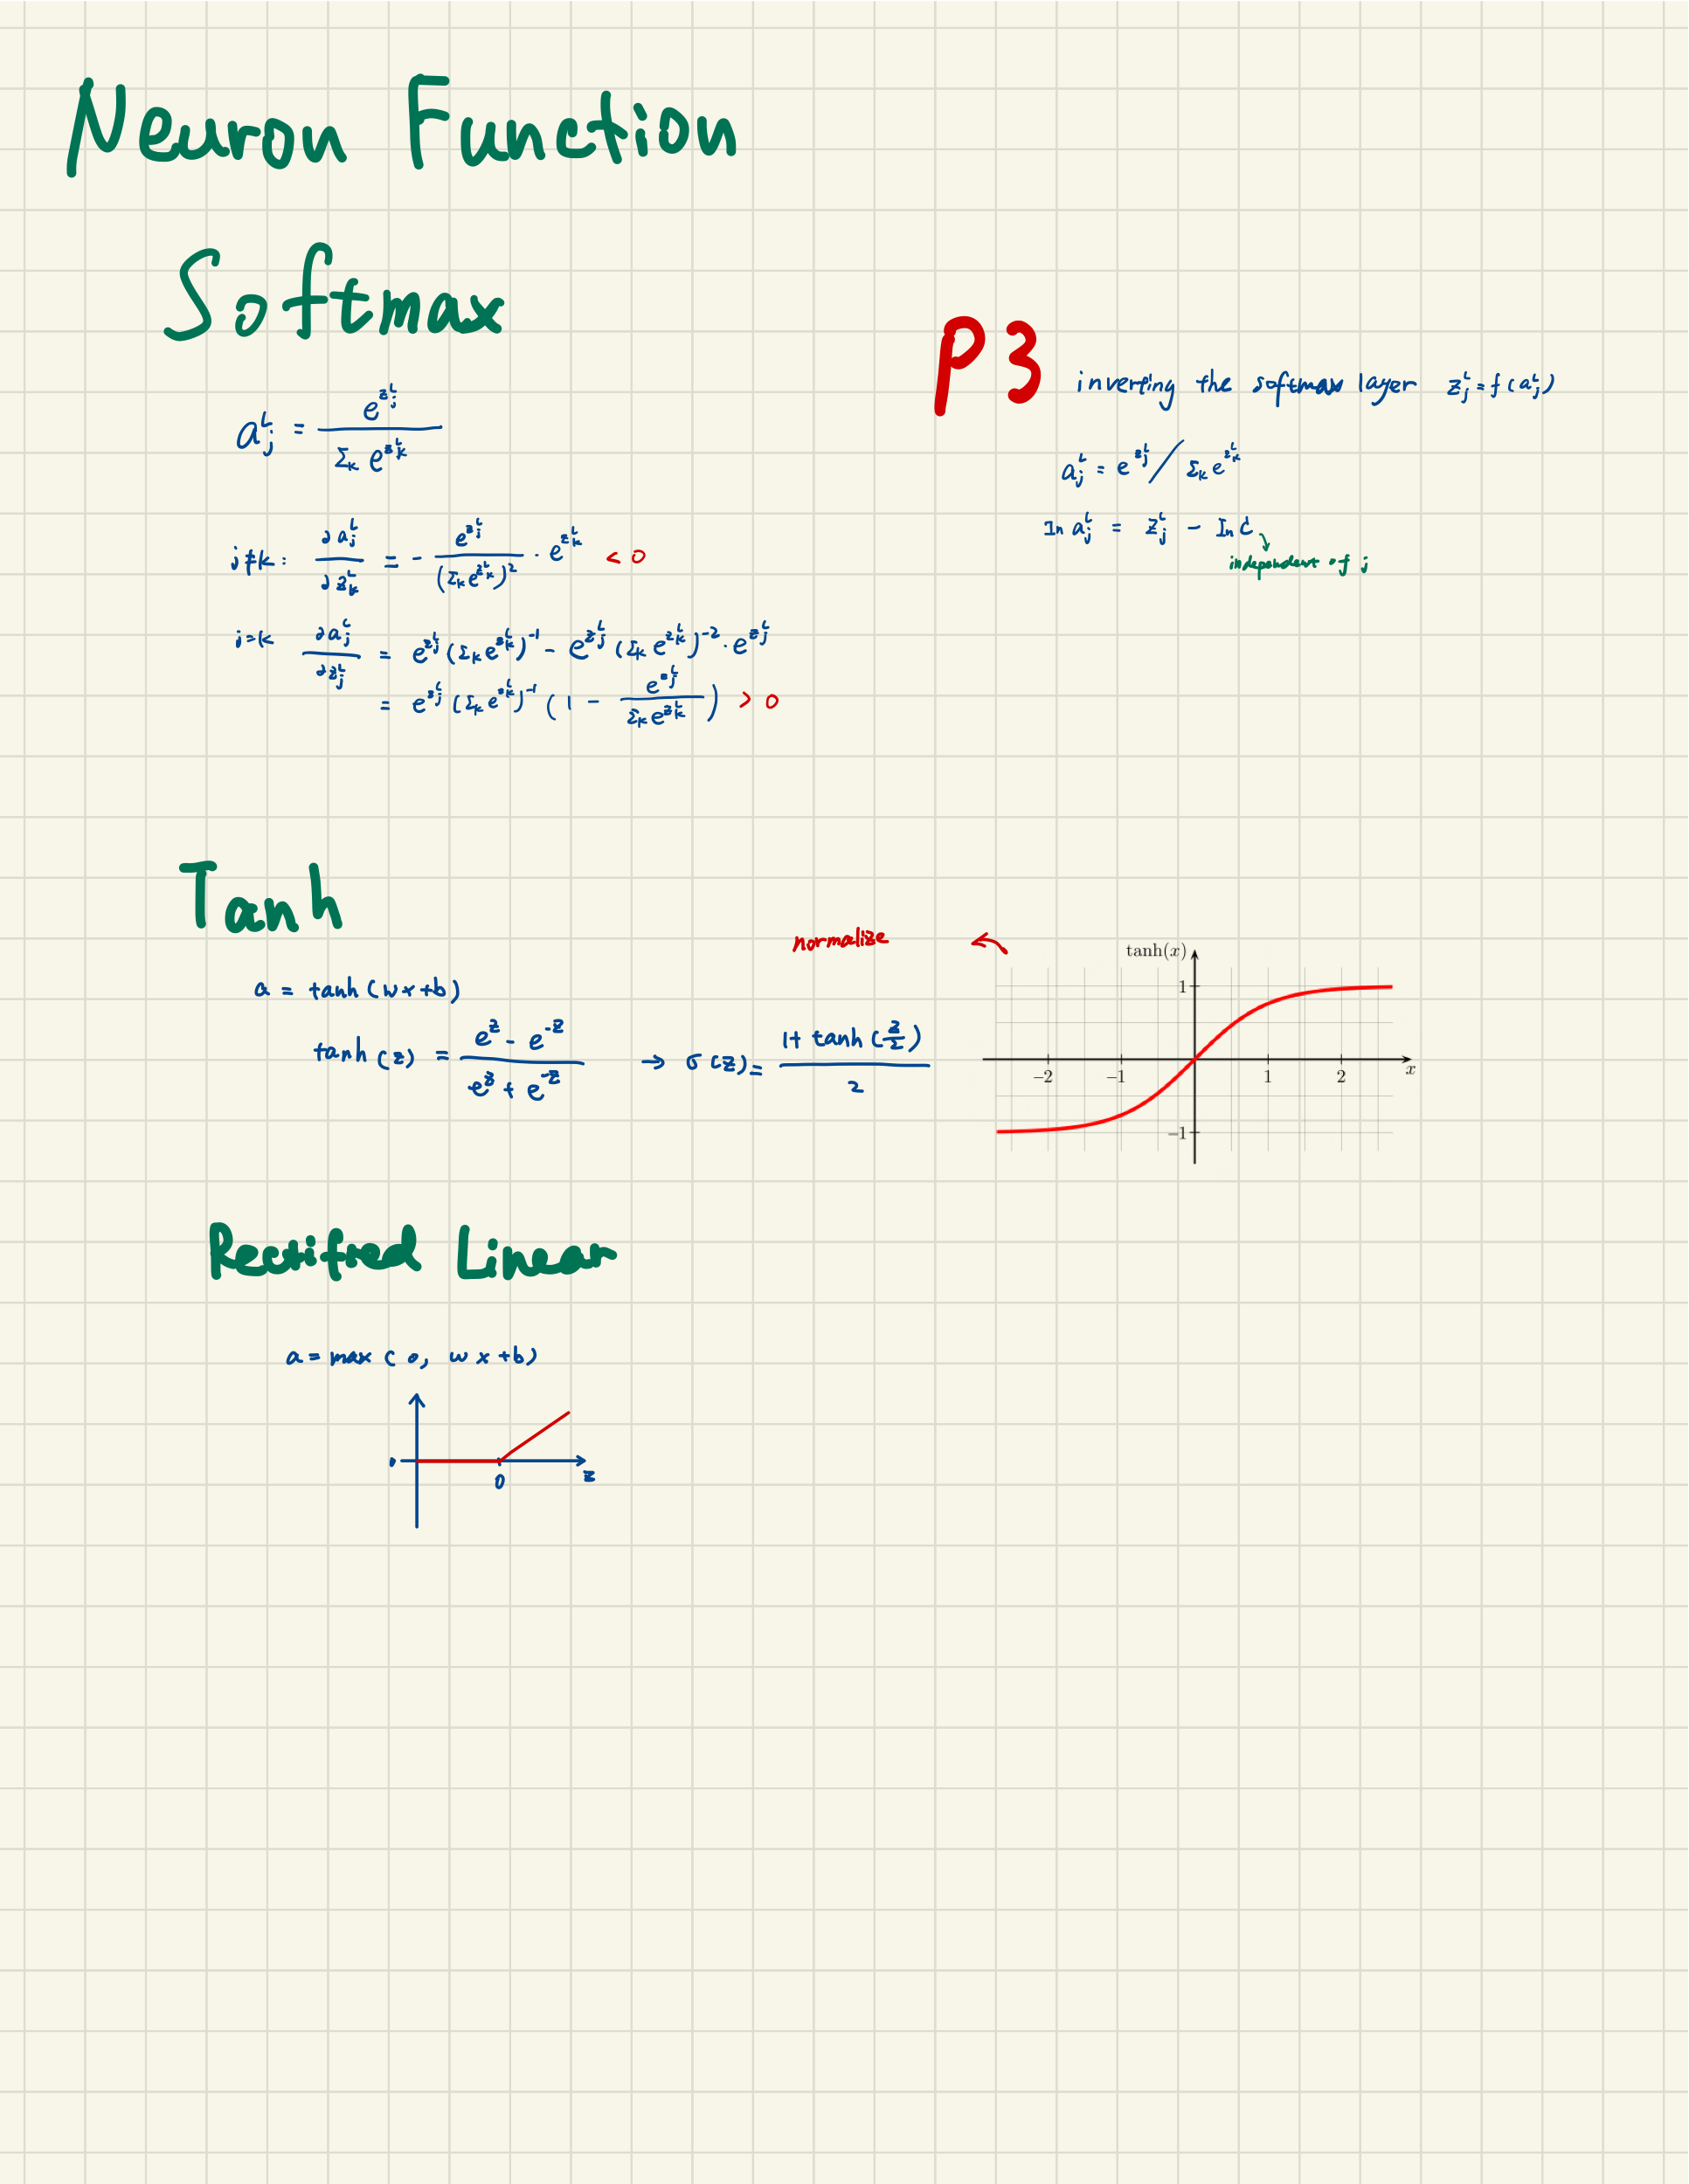 Neuron Function
Softmax
a_j^L = e^{z_j^L} / Σ_k e^{z_k^L}
j≠k: ∂a_j^L / ∂z_k^L = - e^{z_j^L} / (Σ_k e^{z_k^L})^2 · e^{z_k^L} < 0
j=k ∂a_j^L / ∂z_j^L = e^{z_j^L} (Σ_k e^{z_k^L})^{-1} - e^{z_j^L} (Σ_k e^{z_k^L})^{-2} · e^{z_j^L}
= e^{z_j^L} (Σ_k e^{z_k^L})^{-1} (1 - e^{z_j^L} / Σ_k e^{z_k^L}) > 0
P3 inverting the softmax layer z_j^L = f(a_j^L)
a_j^L = e^{z_j^L} / Σ_k e^{z_k^L}
In a_j^L = z_j^L - In C
independent of j
Tanh
a = tanh(wx+b)
tanh(z) = (e^z - e^{-z}) / (e^z + e^{-z}) → σ(z) = (1 + tanh(z/2)) / 2
normalize
tanh(x)
1
-2 -1 1 2 x
-1
Rectified Linear
a = max(0, wx+b)
0
0 z